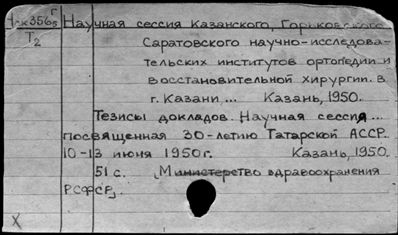 1-к356₅ г Научная сессия Казанского, Горьковского,
Т₂ Саратовского научно-исследова-
тельских институтов ортопедии и
восстановительной хирургии. В
г. Казани... Казань, 1950.
Тезисы докладов. Научная сессия...
посвященная 30-летию Татарской АССР.
10-13 июня 1950г. Казань, 1950.
51 с. (Министерство здравоохранения
РСФСР).
X